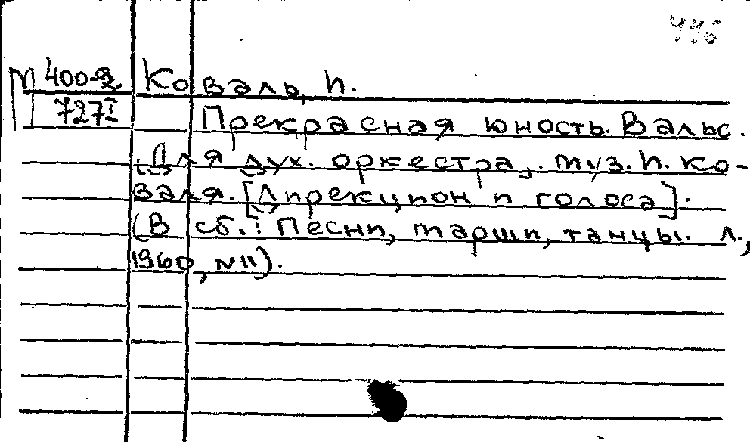 446
М 400-2 Коваль, И.
727I Прекрасная юность. Вальс.
(Для дух. оркестра,. муз. И. Ко-
валя. [Дирекцион и голоса].
(В сб.: Песни, марши, танцы. Л.,
1960, №11).